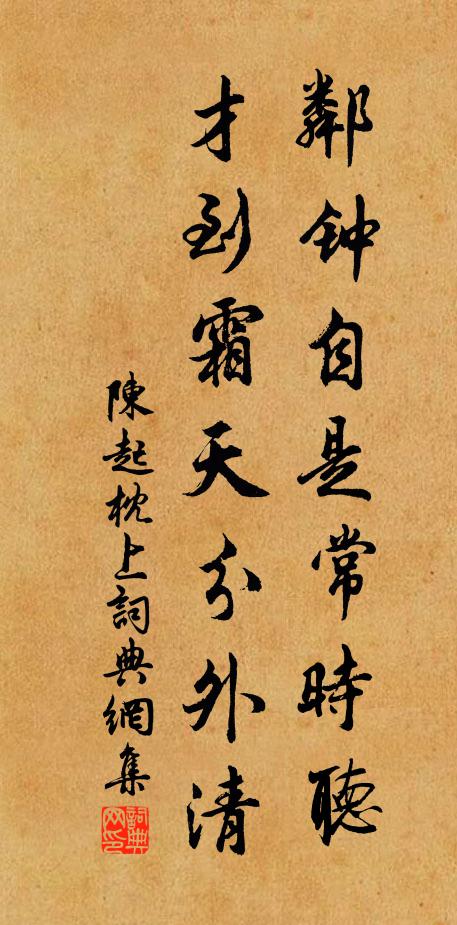 鄰钟自是常時聴
才到霜天分外清
陳起枕上詞典網集
詞典网印